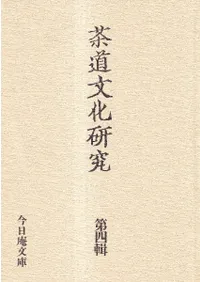 茶道文化研究
第四輯
今日庵文庫